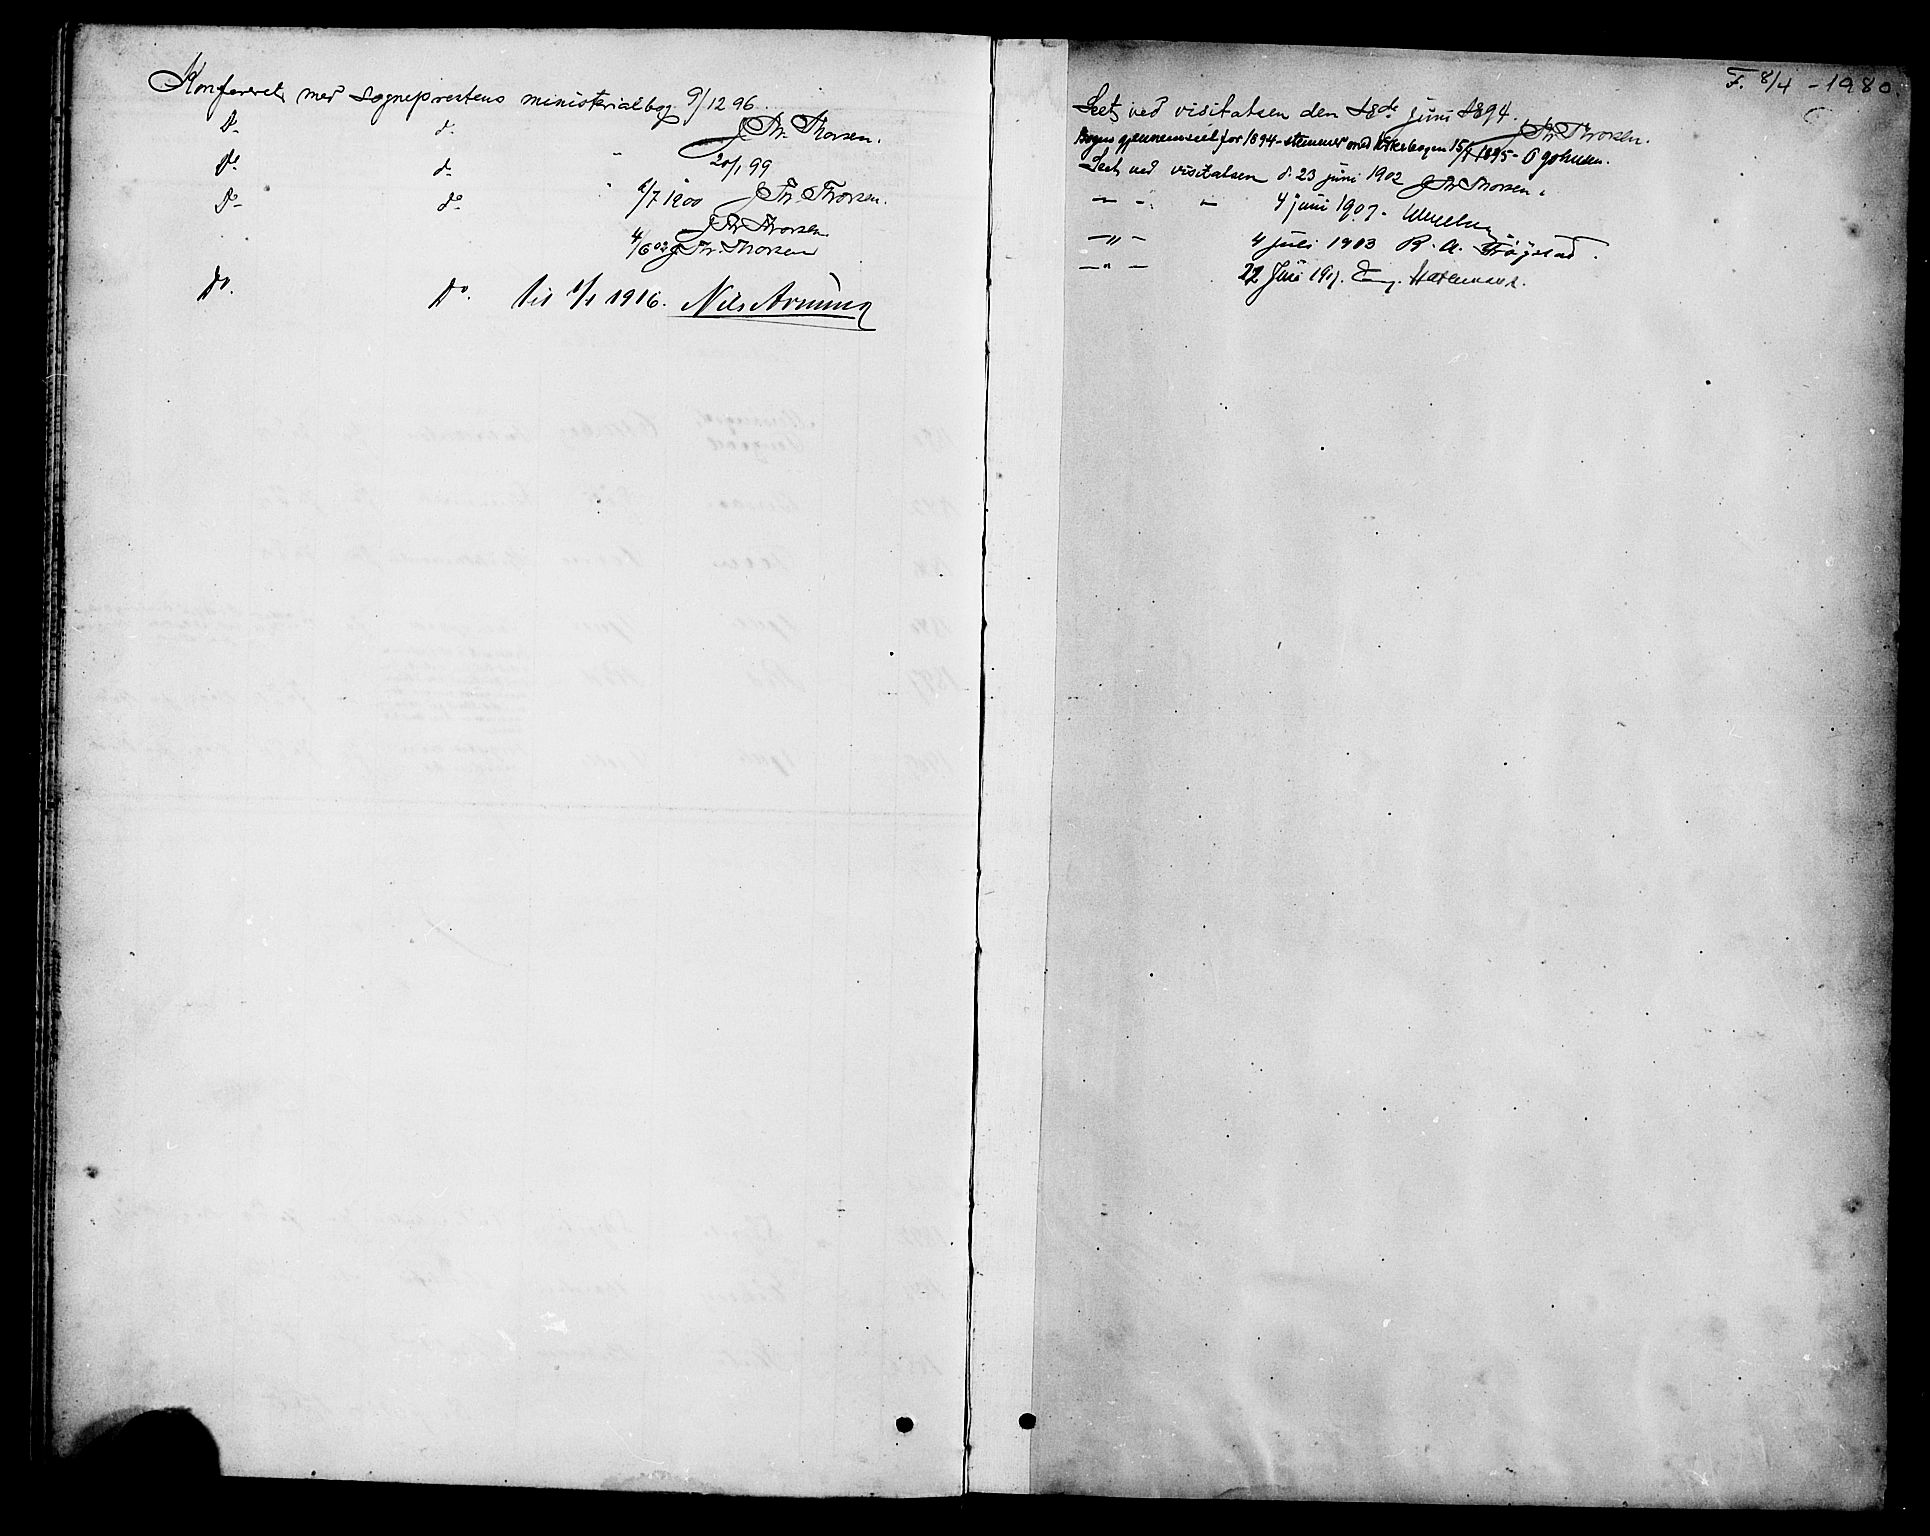 Konfereret med sogneprestens ministerialbog 9/12 96.
Do do J Fr. Thorsen.
Do do " 20/1 99
J Fr. Thorsen.
Do do " /7 1900
J Fr Thorsen
4/6 02 J Fr. Thorsen
Do. Do. til 1/1 1916. Nils Arnung
F. 8/4 - 1980.
Seet ved visitatsen den 18de juni 1894.
J Fr Thorsen.
Bogen gjennemseet for 1894 - stemmer med kirkebogen 15/1 1895 - O Johnsen.
Seet ved visitatsen d. 23 juni 1902 J Fr Thorsen.
— " — " — 4 juni 1907.
— " — 4 juli 1913 R. A.
— " — 22 Juni 191